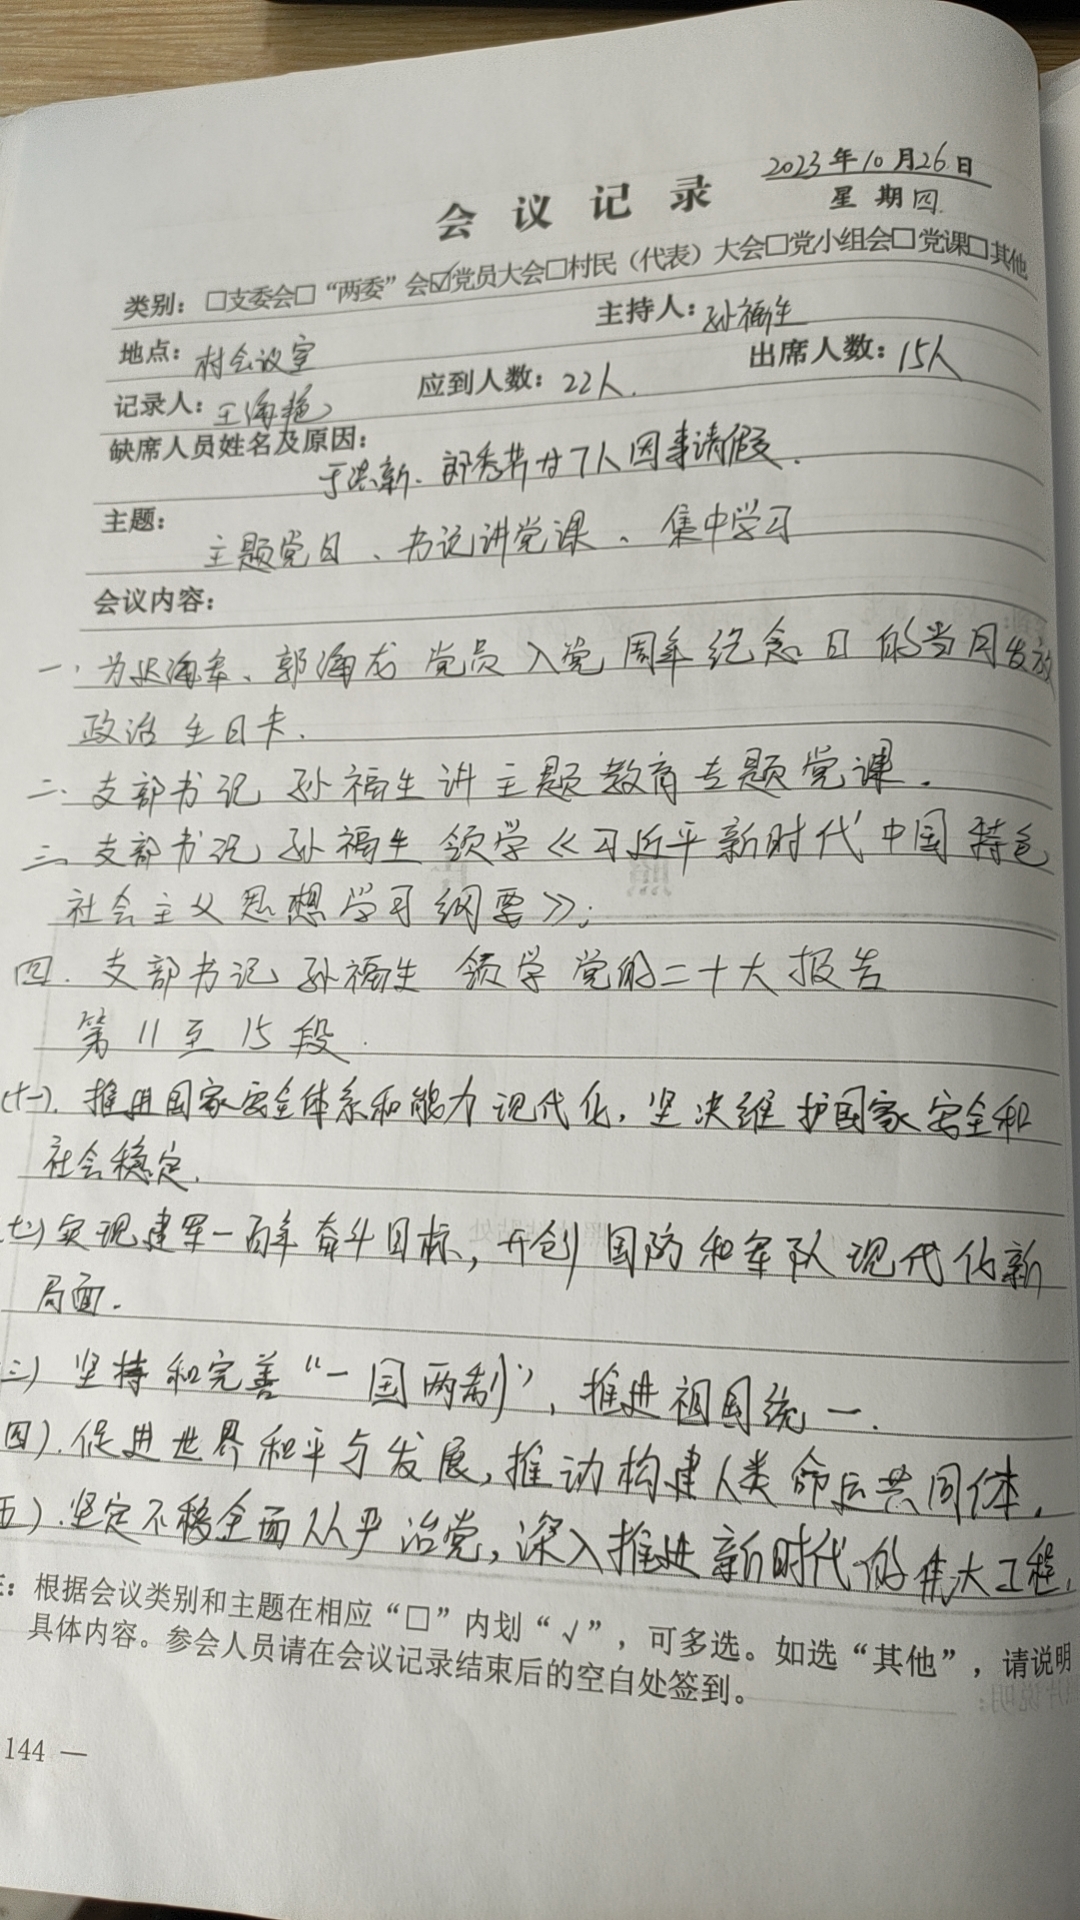 2023年10月26日
会议记录
星期四
类别：□支委会□“两委”会☑党员大会□村民（代表）大会□党小组会□党课□其他
地点：村会议室 主持人：孙福生
记录人：王海艳 应到人数：22人. 出席人数：15人
缺席人员姓名及原因：
于洪新、郎秀芳廿7人因事请假.
主题：
主题党日、书记讲党课、集中学习
会议内容：
一、为迟海、郭海龙党员入党周年纪念日的当月发放
政治生日卡.
二、支部书记孙福生讲主题教育专题党课.
三、支部书记孙福生领学《习近平新时代中国特色
社会主义思想学习纲要》;
四.支部书记孙福生领学党的二十大报告
第11至15段.
(十一).推进国家安全体系和能力现代化,坚决维护国家安全和
社会稳定.
十二)实现建军一百年奋斗目标,开创国防和军队现代化新
局面.
三)坚持和完善“一国两制”,推进祖国统一.
四).促进世界和平与发展,推动构建人类命运共同体.
五).坚定不移全面从严治党,深入推进新时代的伟大工程.
：根据会议类别和主题在相应“□”内划“√”，可多选。如选“其他”，请说明
具体内容。参会人员请在会议记录结束后的空白处签到。
144 —